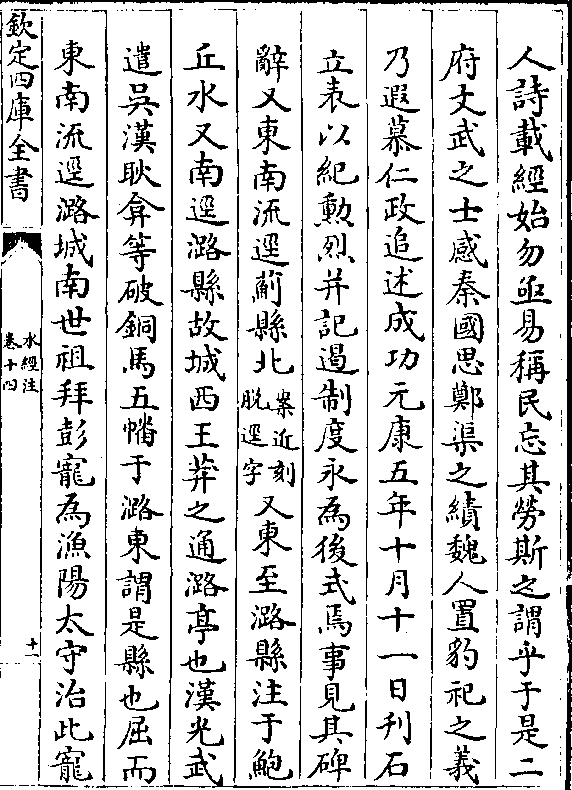 人詩載經始勿亟易稱民忘其勞斯之謂乎于是二
府文武之士感秦國思鄭渠之績魏人置豹祀之義
乃遐慕仁政追述成功元康五年十月十一日刋石
立表以紀勲烈并記遏制度永為後式焉事見其碑
辭又東南流逕薊縣北案近刻脫逕字又東至潞縣注于鮑
丘水又南逕潞縣故城西王莽之通潞亭也漢光武
遣吳漢耿弇等破銅馬五幡于潞東謂是縣也屈而
東南流逕潞城南世祖拜彭寵為漁陽太守治此寵
欽定四庫全書
水經注
卷十四
十一